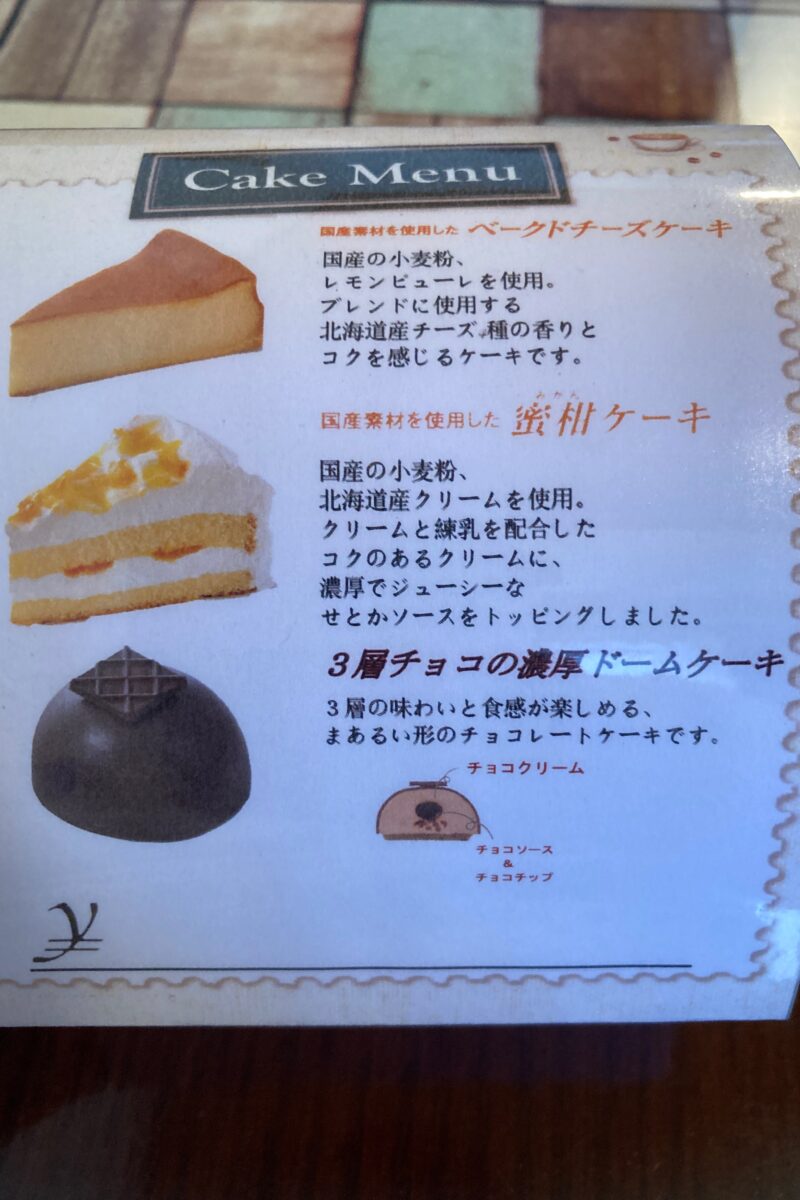 Cake Menu
国産素材を使用した ベークドチーズケーキ
国産の小麦粉、
レモンピューレを使用。
ブレンドに使用する
北海道産チーズ 種の香りと
コクを感じるケーキです。
みかん
国産素材を使用した 蜜柑ケーキ
国産の小麦粉、
北海道産クリームを使用。
クリームと練乳を配合した
コクのあるクリームに、
濃厚でジューシーな
せとかソースをトッピングしました。
3層チョコの濃厚ドームケーキ
3層の味わいと食感が楽しめる、
まあるい形のチョコレートケーキです。
チョコクリーム
チョコソース
&
チョコチップ
y